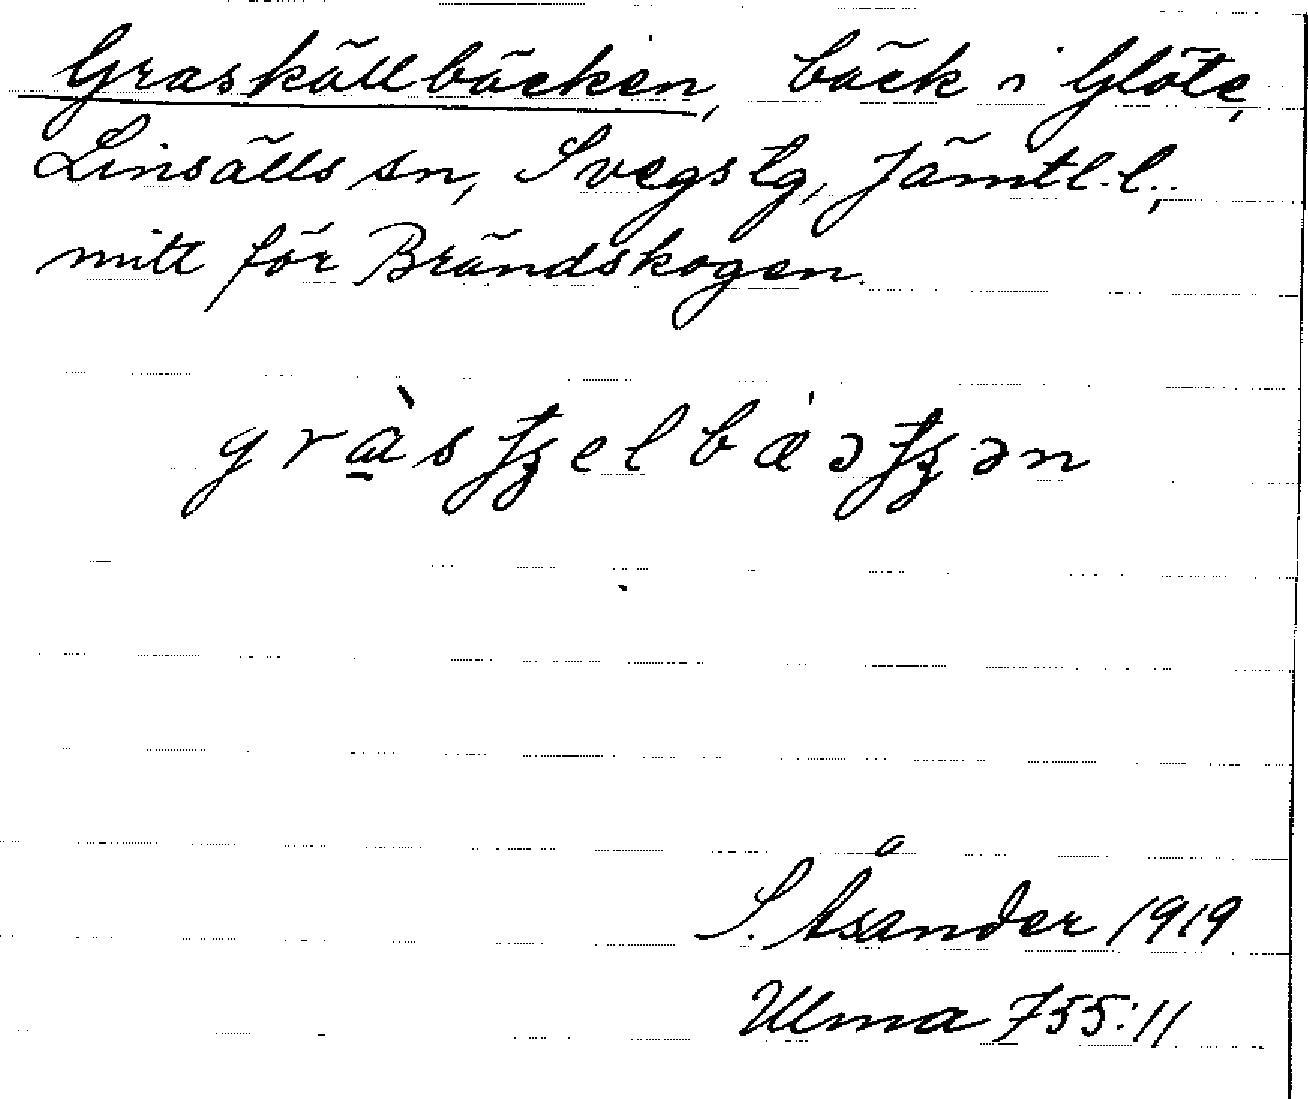 Graskällbäcken, bäck i Glöte,
Linsälls sn, Svegs tg, Jämtl. l.;
mitt för Brändskogen.
S. Åsander 1919
Ulma 755:11